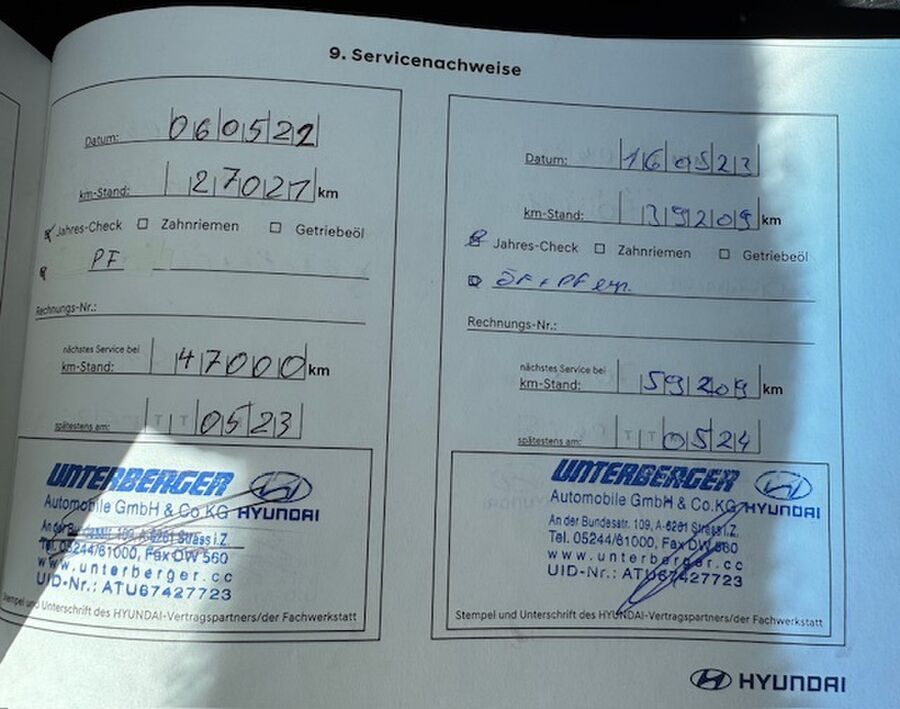 9. Servicenachweise
Datum: 060522
km-Stand: 27021 km
Jahres-Check Zahnriemen Getriebeöl
PF
Rechnungs-Nr.:
nächstes Service bei
km-Stand: 47000 km
spätestens am: TT 0523
UNTERBERGER
Automobile GmbH & Co.KG HYUNDAI
An der Bundesstr. 109, A-6261 Strass i.Z.
Tel. 05244/61000, Fax DW 560
www.unterberger.cc
UID-Nr.: ATU67427723
Stempel und Unterschrift des HYUNDAI-Vertragspartners/der Fachwerkstatt
Datum: 160523
km-Stand: 39209 km
Jahres-Check Zahnriemen Getriebeöl
ÖF + PF ern.
Rechnungs-Nr.:
nächstes Service bei
km-Stand: 59209 km
spätestens am: TT 0524
UNTERBERGER
Automobile GmbH & Co.KG HYUNDAI
An der Bundesstr. 109, A-6261 Strass i.Z.
Tel. 05244/61000, Fax DW 560
www.unterberger.cc
UID-Nr.: ATU67427723
Stempel und Unterschrift des HYUNDAI-Vertragspartners/der Fachwerkstatt
HYUNDAI